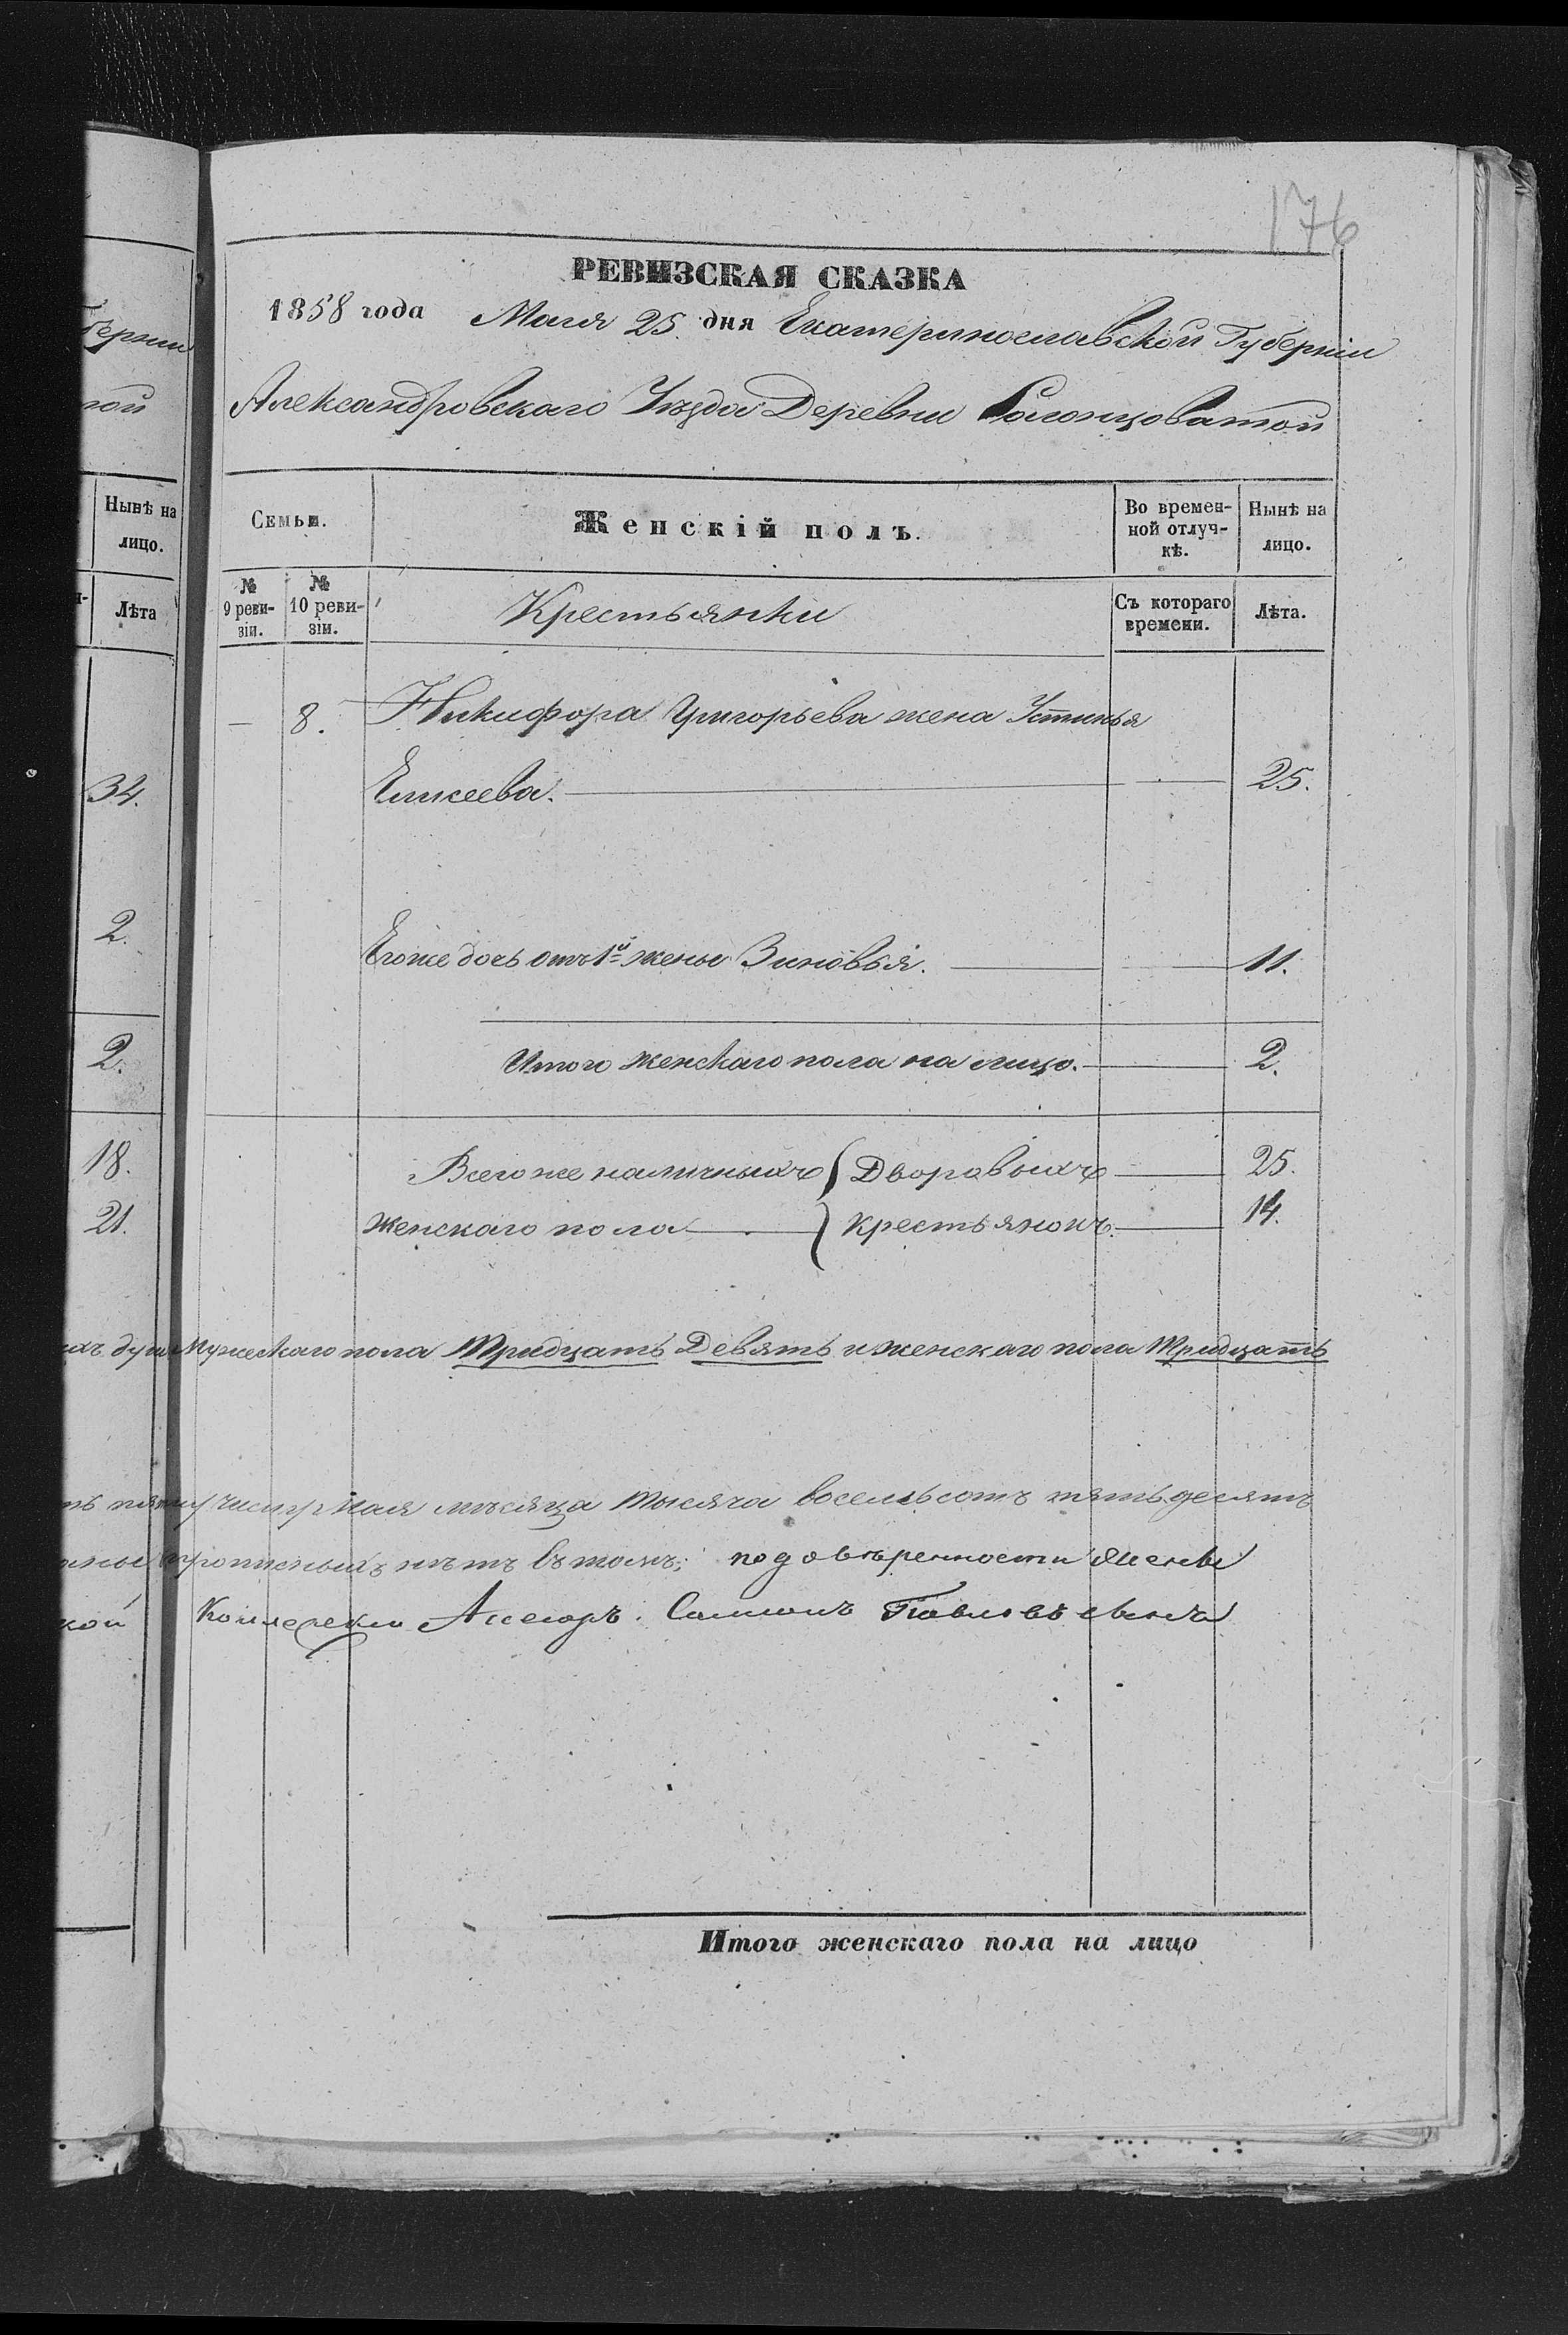 176
РЕВИЗСКАЯ СКАЗКА
1858 года Маия 25. дня Екатеринославской Губерніи
Александровскаго Уѣзда Деревни Солонцоватой
берніи
ной
Нынѣ на лицо.
Лѣта
34.
2.
2.
18.
21.
Семьи.
Женскій полъ.
Во времен-
ной отлуч-
кѣ.
Нынѣ на
лицо.
№
9 реви-
зіи.
№
10 реви-
зіи.
Крестьянки
Съ котораго
времени.
Лѣта.
— 8. Никифора Григорьева жена Устинья
Елисеева. 25.
Егоже дочь отъ 1й жены Зиновья. 11.
Итого женскаго пола на лицо. 2.
Всего же наличныхъ Дворовыхъ 25.
женскаго пола крестьянокъ. 14.
ихъ душъ Мужескаго пола Тридцать Девять и женскаго пола Тридцать
числу Мая мѣсяца тысяча восемьсотъ пятьдесятъ
прописныхъ нѣтъ въ томъ; по довѣренности
кой Ассесоръ.
Итого женскаго пола на лицо